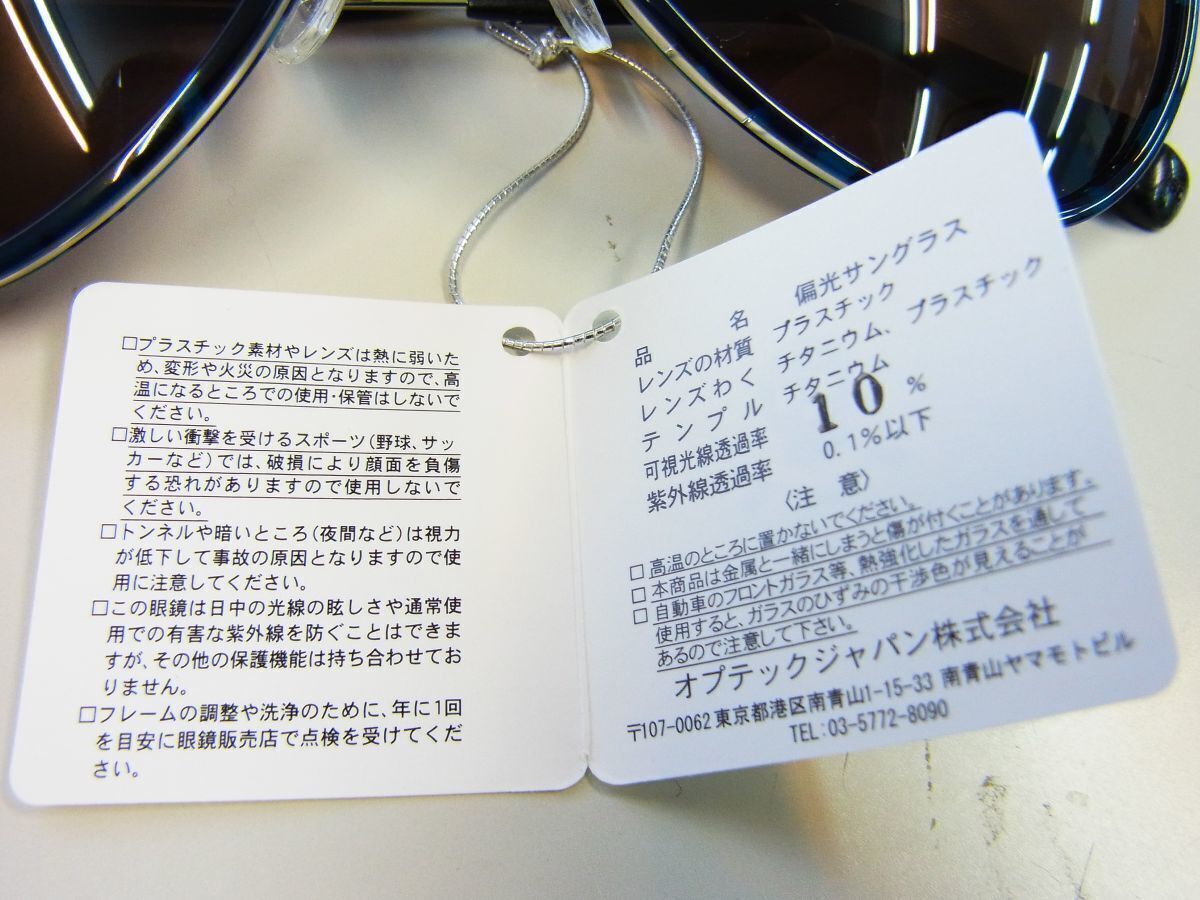 □プラスチック素材やレンズは熱に弱いた
め、変形や火災の原因となりますので、高
温になるところでの使用・保管はしないで
ください。
□激しい衝撃を受けるスポーツ(野球、サッ
カーなど)では、破損により顔面を負傷
する恐れがありますので使用しないで
ください。
□トンネルや暗いところ(夜間など)は視力
が低下して事故の原因となりますので使
用に注意してください。
□この眼鏡は日中の光線の眩しさや通常使
用での有害な紫外線を防ぐことはできま
すが、その他の保護機能は持ち合わせてお
りません。
□フレームの調整や洗浄のために、年に1回
を目安に眼鏡販売店で点検を受けてくだ
さい。
品名 偏光サングラス
レンズの材質 プラスチック
レンズわく チタニウム、プラスチック
テンプル チタニウム
可視光線透過率 10 %
紫外線透過率 0.1%以下
〈注 意〉
□高温のところに置かないでください。
□本商品は金属と一緒にしまうと傷が付くことがあります。
□自動車のフロントガラス等、熱強化したガラスを通して
使用すると、ガラスのひずみの干渉色が見えることが
あるので注意して下さい。
オプテックジャパン株式会社
〒107-0062 東京都港区南青山1-15-33 南青山ヤマモトビル
TEL:03-5772-8090